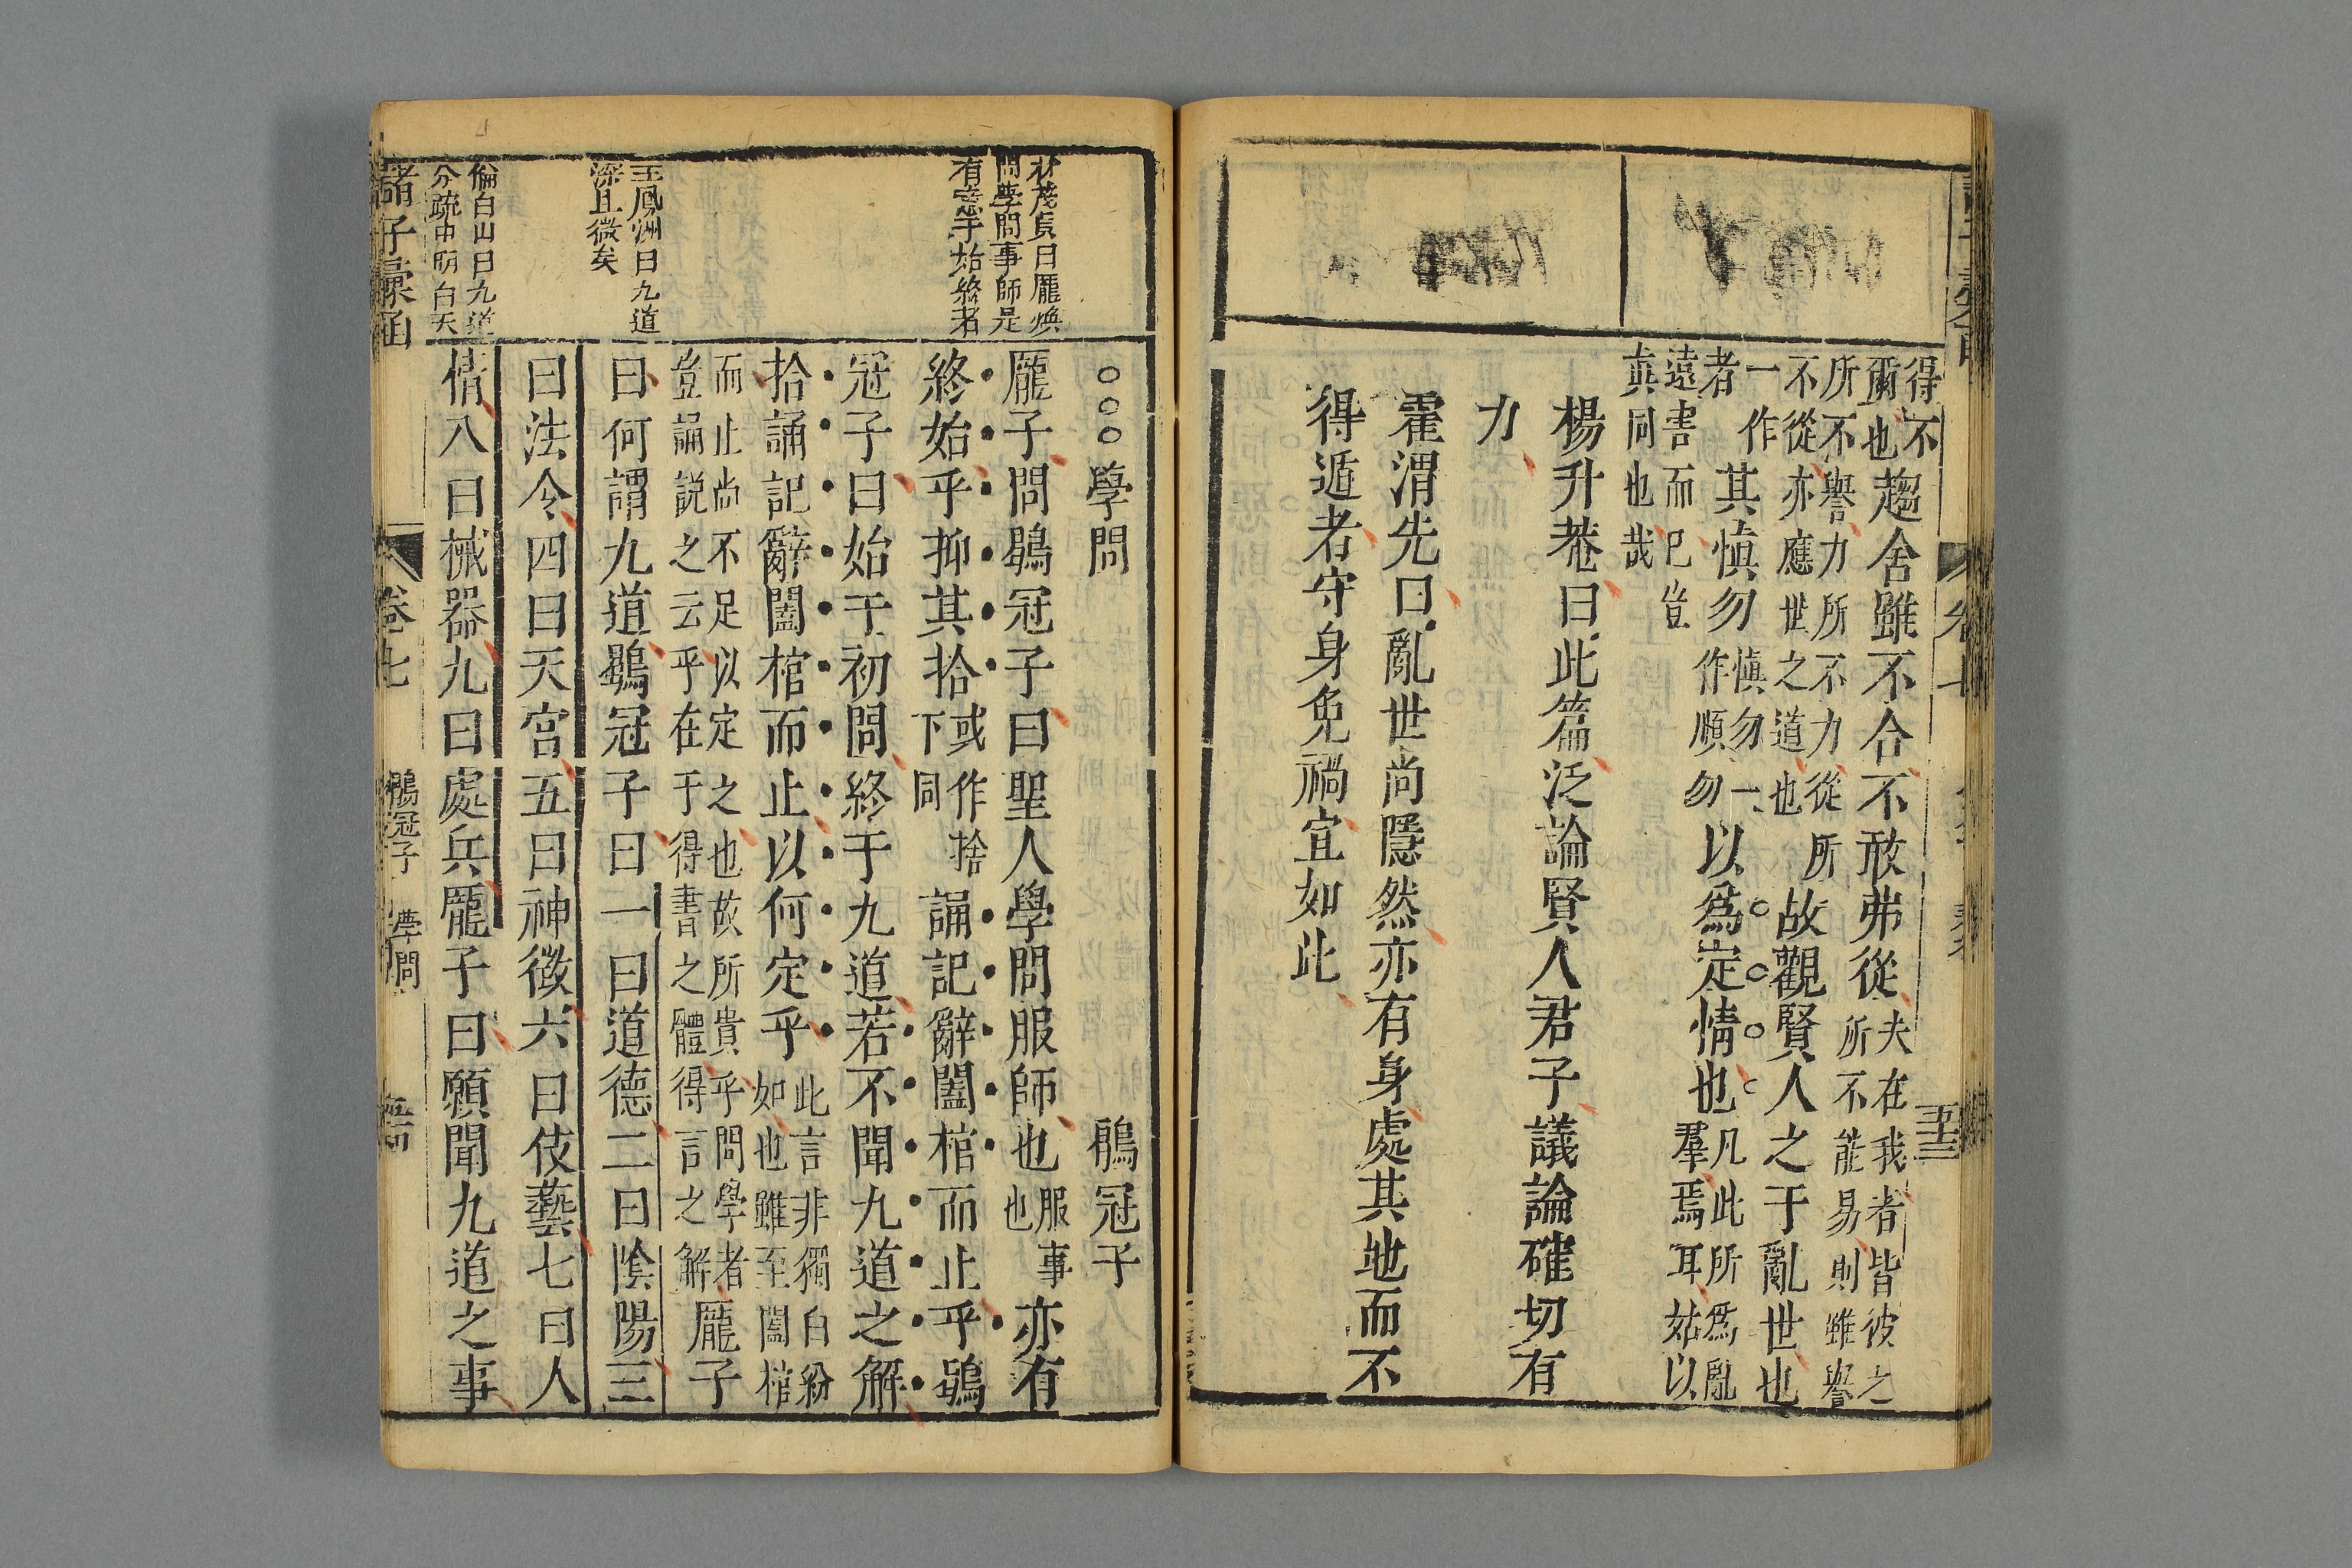 得不
爾也
趨舍雖不合不敢弗從
夫在我者皆彼之
所不能易則雖譽
所不譽力所不力從所
不從亦應世之道也
故觀賢人之于亂世也
一作
者
其慎勿
慎勿一
作順勿
以爲定情也
凡此所爲亂
羣焉耳姑以
遠害而已豈
真同也哉
楊升菴曰此篇泛論賢人君子議論確切有
力
霍渭先曰亂世尚隱然亦有身處其地而不
得遁者守身免禍宜如此
五十三
○○○學問 鶡冠子
龐子問鶡冠子曰聖人學問服師也
服事
也
亦有
終始乎抑其拾
或作捨
下同
誦記辭闔棺而止乎鶡
冠子曰始于初問終于九道若不聞九道之解
拾誦記辭闔棺而止以何定乎
此言非獨白紛
如也雖至闔棺
而止尚不足以定之也故所貴乎問學者
豈誦說之云乎在于得書之體得言之解
龐子
曰何謂九道鶡冠子曰一曰道德二曰陰陽三
曰法令四曰天官五曰神徵六曰伎藝七曰人
情八曰械器九曰處兵龐子曰願聞九道之事
林茂貞曰龐煥
問學問事師是
有意于始終者
王鳳洲曰九道
深且微矣
倫白山曰九道
分疏中明白天
諸子彙函
卷七
鶡冠子 學問